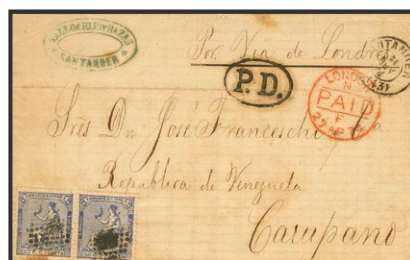 SANTANDER
Por Via de Londres
SANTANDER
P.D.
LONDON
N
PAID
F
27 AP
Sres Dn José Franceschi
Republica de Venezuela
Carupano